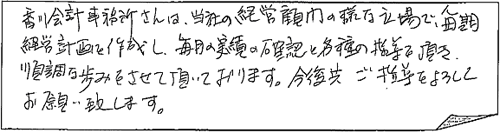 香川会計事務所さんは、当社の経営顧問の様な立場で、毎期
経営計画を作成し、毎月の実績の確認と各種の指導を頂き、
順調な歩みをさせて頂いております。今後共 ご指導をよろしく
お願い致します。